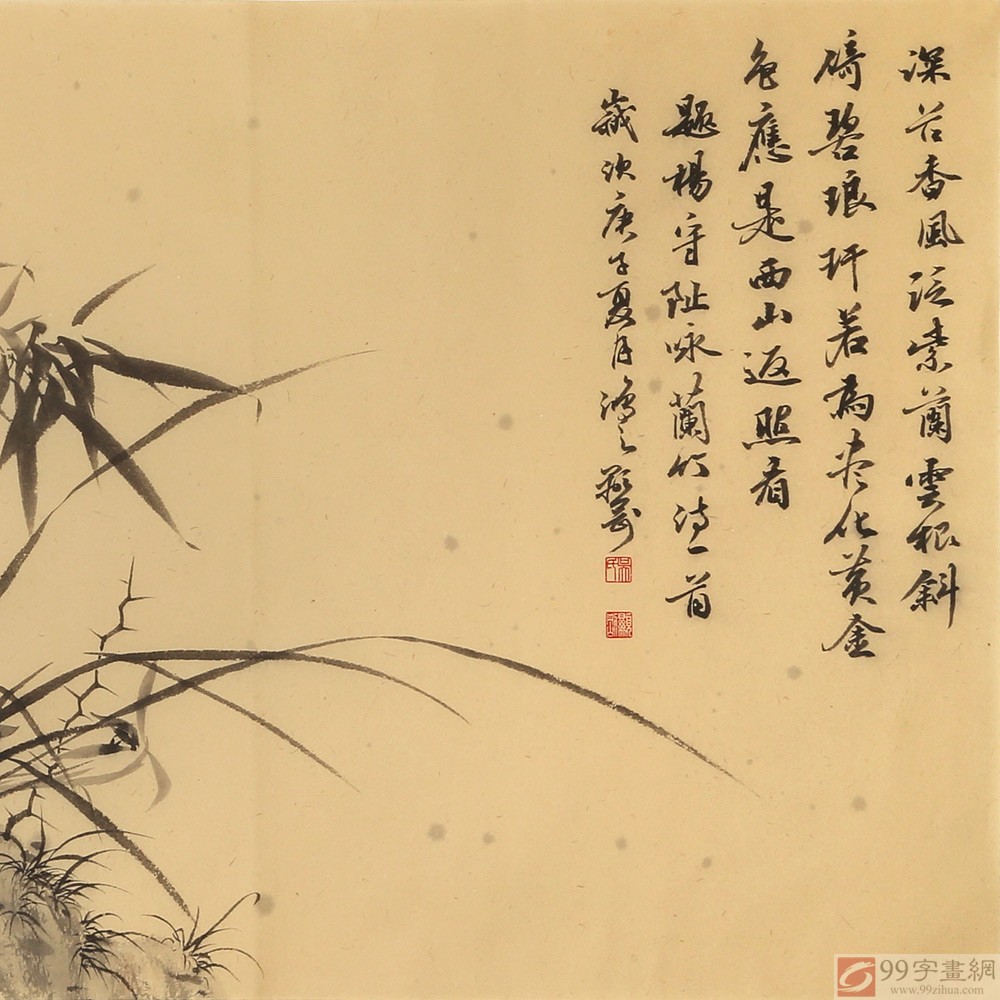 深谷香風泛紫蘭雲根斜
倚碧琅玕若為盡化黃金
色應是西山返照看
題楊守阯咏蘭竹詩一首
歲次庚子夏月
99字畫網
www.99zihua.com